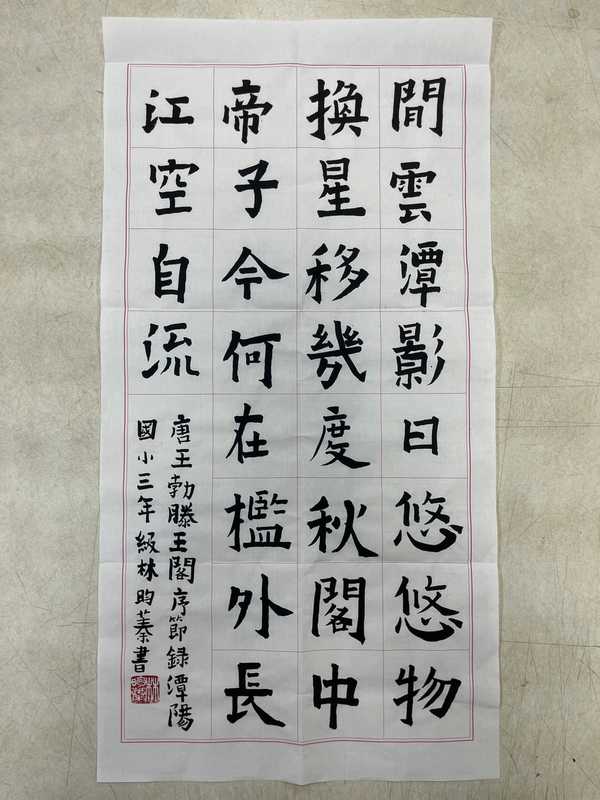 閒雲潭影日悠悠物
換星移幾度秋閣中
帝子今何在檻外長
江空自流
唐王勃滕王閣序節録潭陽
國小三年級林昀蓁書